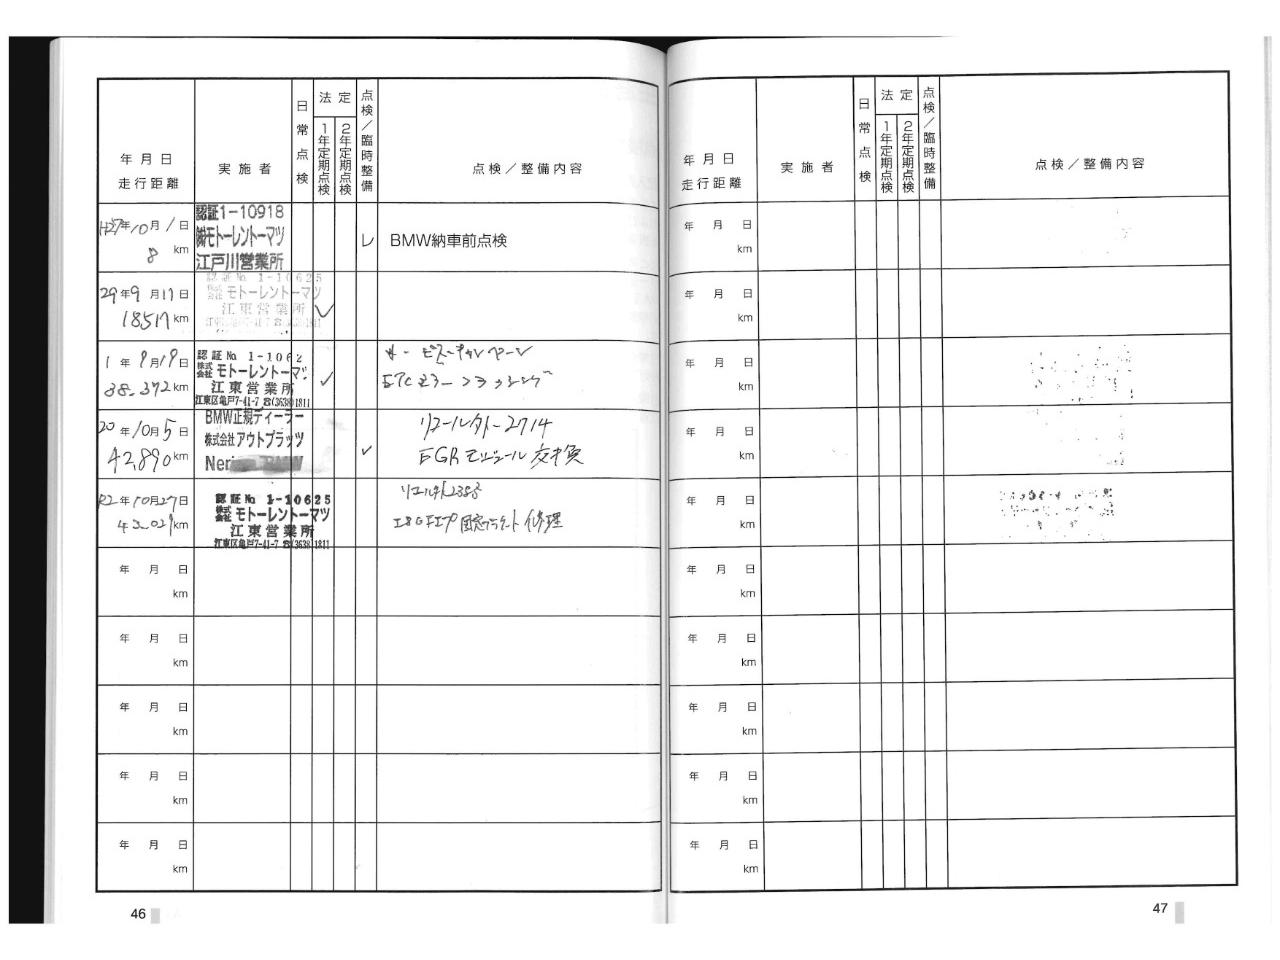 年月日
走行距離
実施者
日常点検
法定
1年定期点検
2年定期点検
点検/臨時整備
点検/整備内容
H27年10月1日
8 km
認証1-10918
㈱モトーレントーマツ
江戸川営業所
レ
BMW納車前点検
29年9月17日
18517km
認証No 1-10625
株式会社モトーレントーマツ
江東営業所
江東区亀戸7-41-7 ☎(3638)1811
1年9月19日
38.372km
認証No 1-1062
株式会社モトーレントーマツ
江東営業所
江東区亀戸7-41-7 ☎(3638)1811
サービスキャンペーン
ETCミラーフラッシング
20年10月5日
42,890km
BMW正規ディーラー
株式会社アウトプラッツ
Ner BMW
リコール外-2714
EGRモジュール交換
R2年10月27日
43.029km
認証No 1-10625
株式会社モトーレントーマツ
江東営業所
江東区亀戸7-41-7 ☎(3638)1811
固定ブラケット修理
年月日
km
年月日
km
年月日
km
年月日
km
年月日
km
46
年月日
走行距離
実施者
日常点検
法定
1年定期点検
2年定期点検
点検/臨時整備
点検/整備内容
年月日
km
年月日
km
年月日
km
年月日
km
年月日
km
年月日
km
年月日
km
年月日
km
年月日
km
年月日
km
47